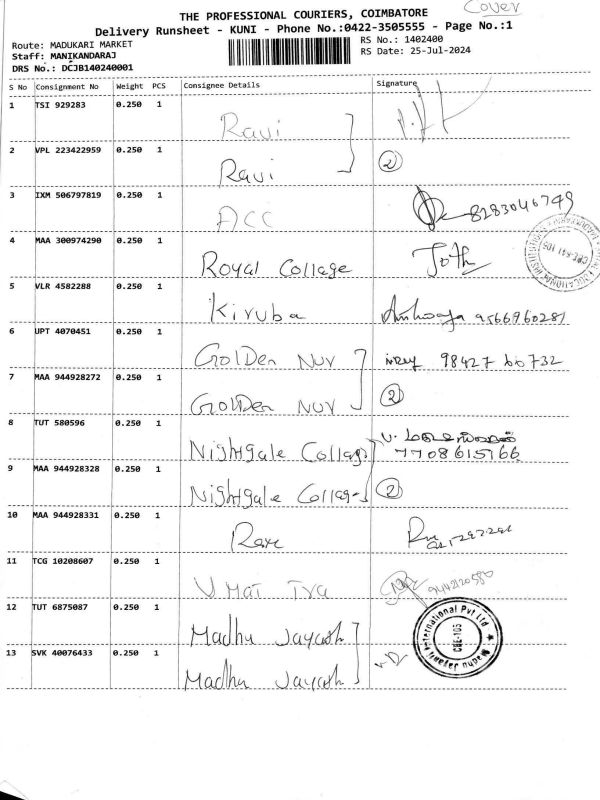 Cover
THE PROFESSIONAL COURIERS, COIMBATORE
Delivery Runsheet - KUNI - Phone No.:0422-3505555 - Page No.:1
Route: MADUKARI MARKET
RS No.: 1402400
Staff: MANIKANDARAJ
RS Date: 25-Jul-2024
DRS No.: DCJB140240001
S No Consignment No Weight PCS Consignee Details Signature
1 TSI 929283 0.250 1 Ravi
2 VPL 223422959 0.250 1 Ravi 2
3 IXM 506797819 0.250 1 ACC 8283046749
4 MAA 300974290 0.250 1 Royal Collage Joth
5 VLR 4582288 0.250 1 Kiruba 9566960281
6 UPT 4070451 0.250 1 Golden Nuv 98427 60732
7 MAA 944928272 0.250 1 Golden Nuv 2
8 TUT 580596 0.250 1 Nightgale Collag
7708615766
9 MAA 944928328 0.250 1 Nightgale Collag 2
10 MAA 944928331 0.250 1
11 TCG 10208607 0.250 1 9442120580
12 TUT 6875087 0.250 1 Madhu Jayash
International Pvt Ltd
CBE-105
13 SVK 40076433 0.250 1 Madhu Jayash